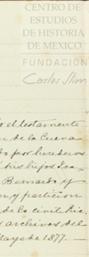 CENTRO DE
ESTUDIOS
DE HISTORIA
DE MEXICO
FUNDACIÓN
Carlos Slim
el testamento
de la Cueva
por herederos
hijos de
Bernardo y
y particion
de la
archivos del
Mayo de 1877.—